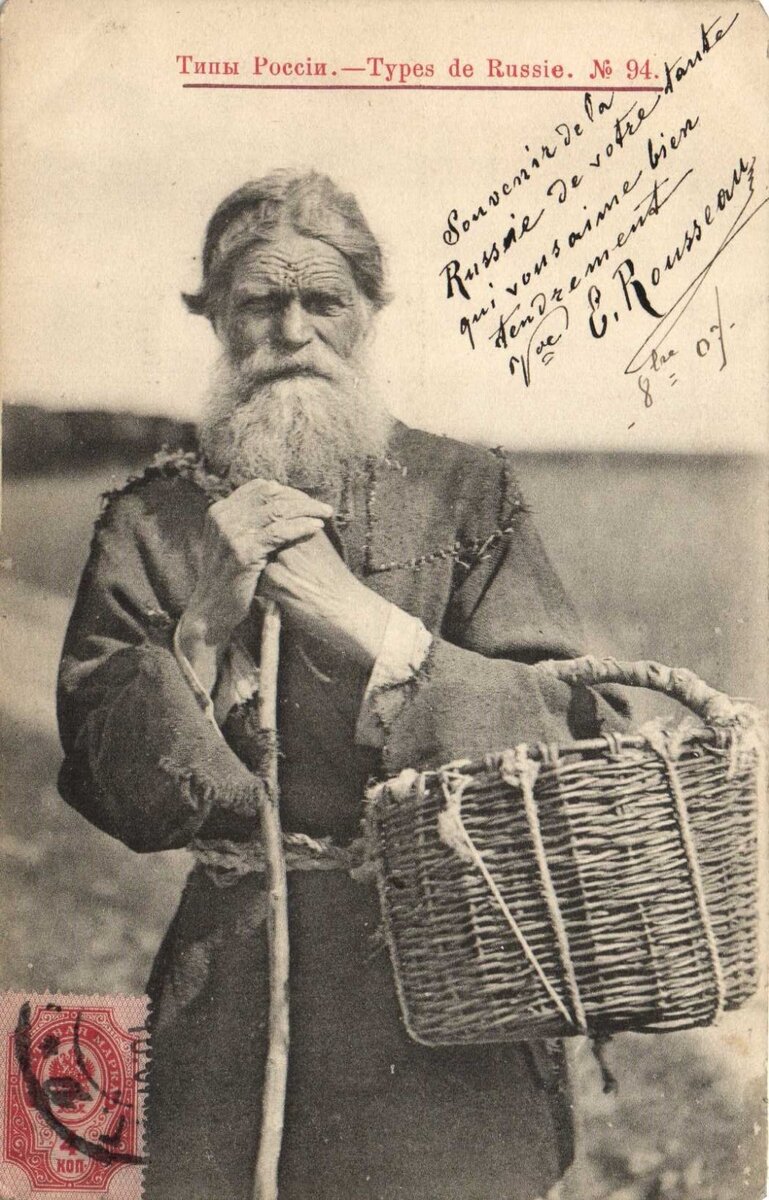 Типы Россіи.—Types de Russie. № 94.
Souvenir de la
Russie de votre tante
qui vous aime bien
tendrement
Vve E. Rousseau
8bre 07.
МАРКА
4
КОП.